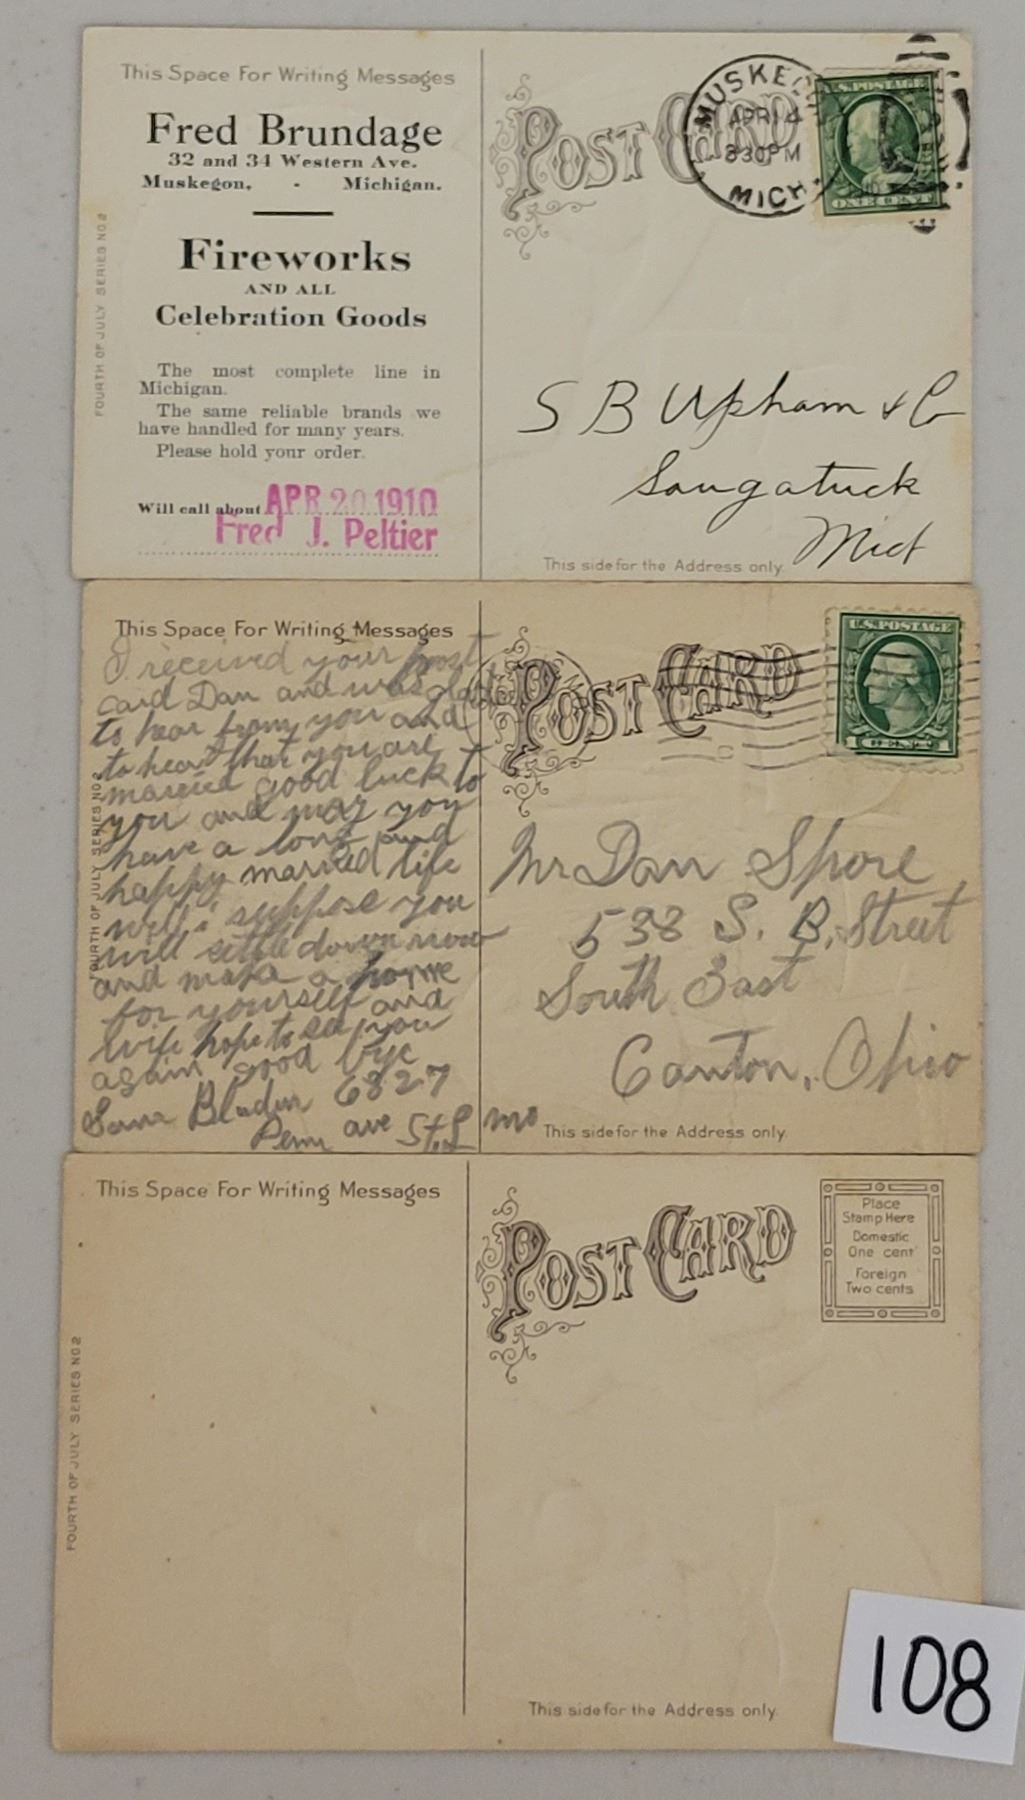 This Space For Writing Messages
Fred Brundage
32 and 34 Western Ave.
Muskegon, - Michigan.
Fireworks
AND ALL
Celebration Goods
The most complete line in
Michigan.
The same reliable brands we
have handled for many years.
Please hold your order.
Will call about APR 20 1910
Fred J. Peltier
FOURTH OF JULY SERIES NO. 2
POST CARD
MUSKEGON
APR 14
830PM
MICH.
U.S. POSTAGE
ONE CENT
S B Upham & Co
Saugatuck
Mich
This side for the Address only.
This Space For Writing Messages
I received your post
card Dan and was glad
to hear from you and
to hear that you are
married good luck to
you and may you
have a long and
happy married life
well i suppose you
will settle down now
and make a home
for yourself and
wife hope to see you
again good bye
6327
Penn ave St. L mo
FOURTH OF JULY SERIES NO. 2
POST CARD
U.S. POSTAGE
1 CENT 1
Mr Dan Spore
538 S. B. Street
South East
Canton, Ohio
This side for the Address only.
This Space For Writing Messages
FOURTH OF JULY SERIES NO. 2
POST CARD
Place
Stamp Here
Domestic
One cent
Foreign
Two cents
This side for the Address only.
108